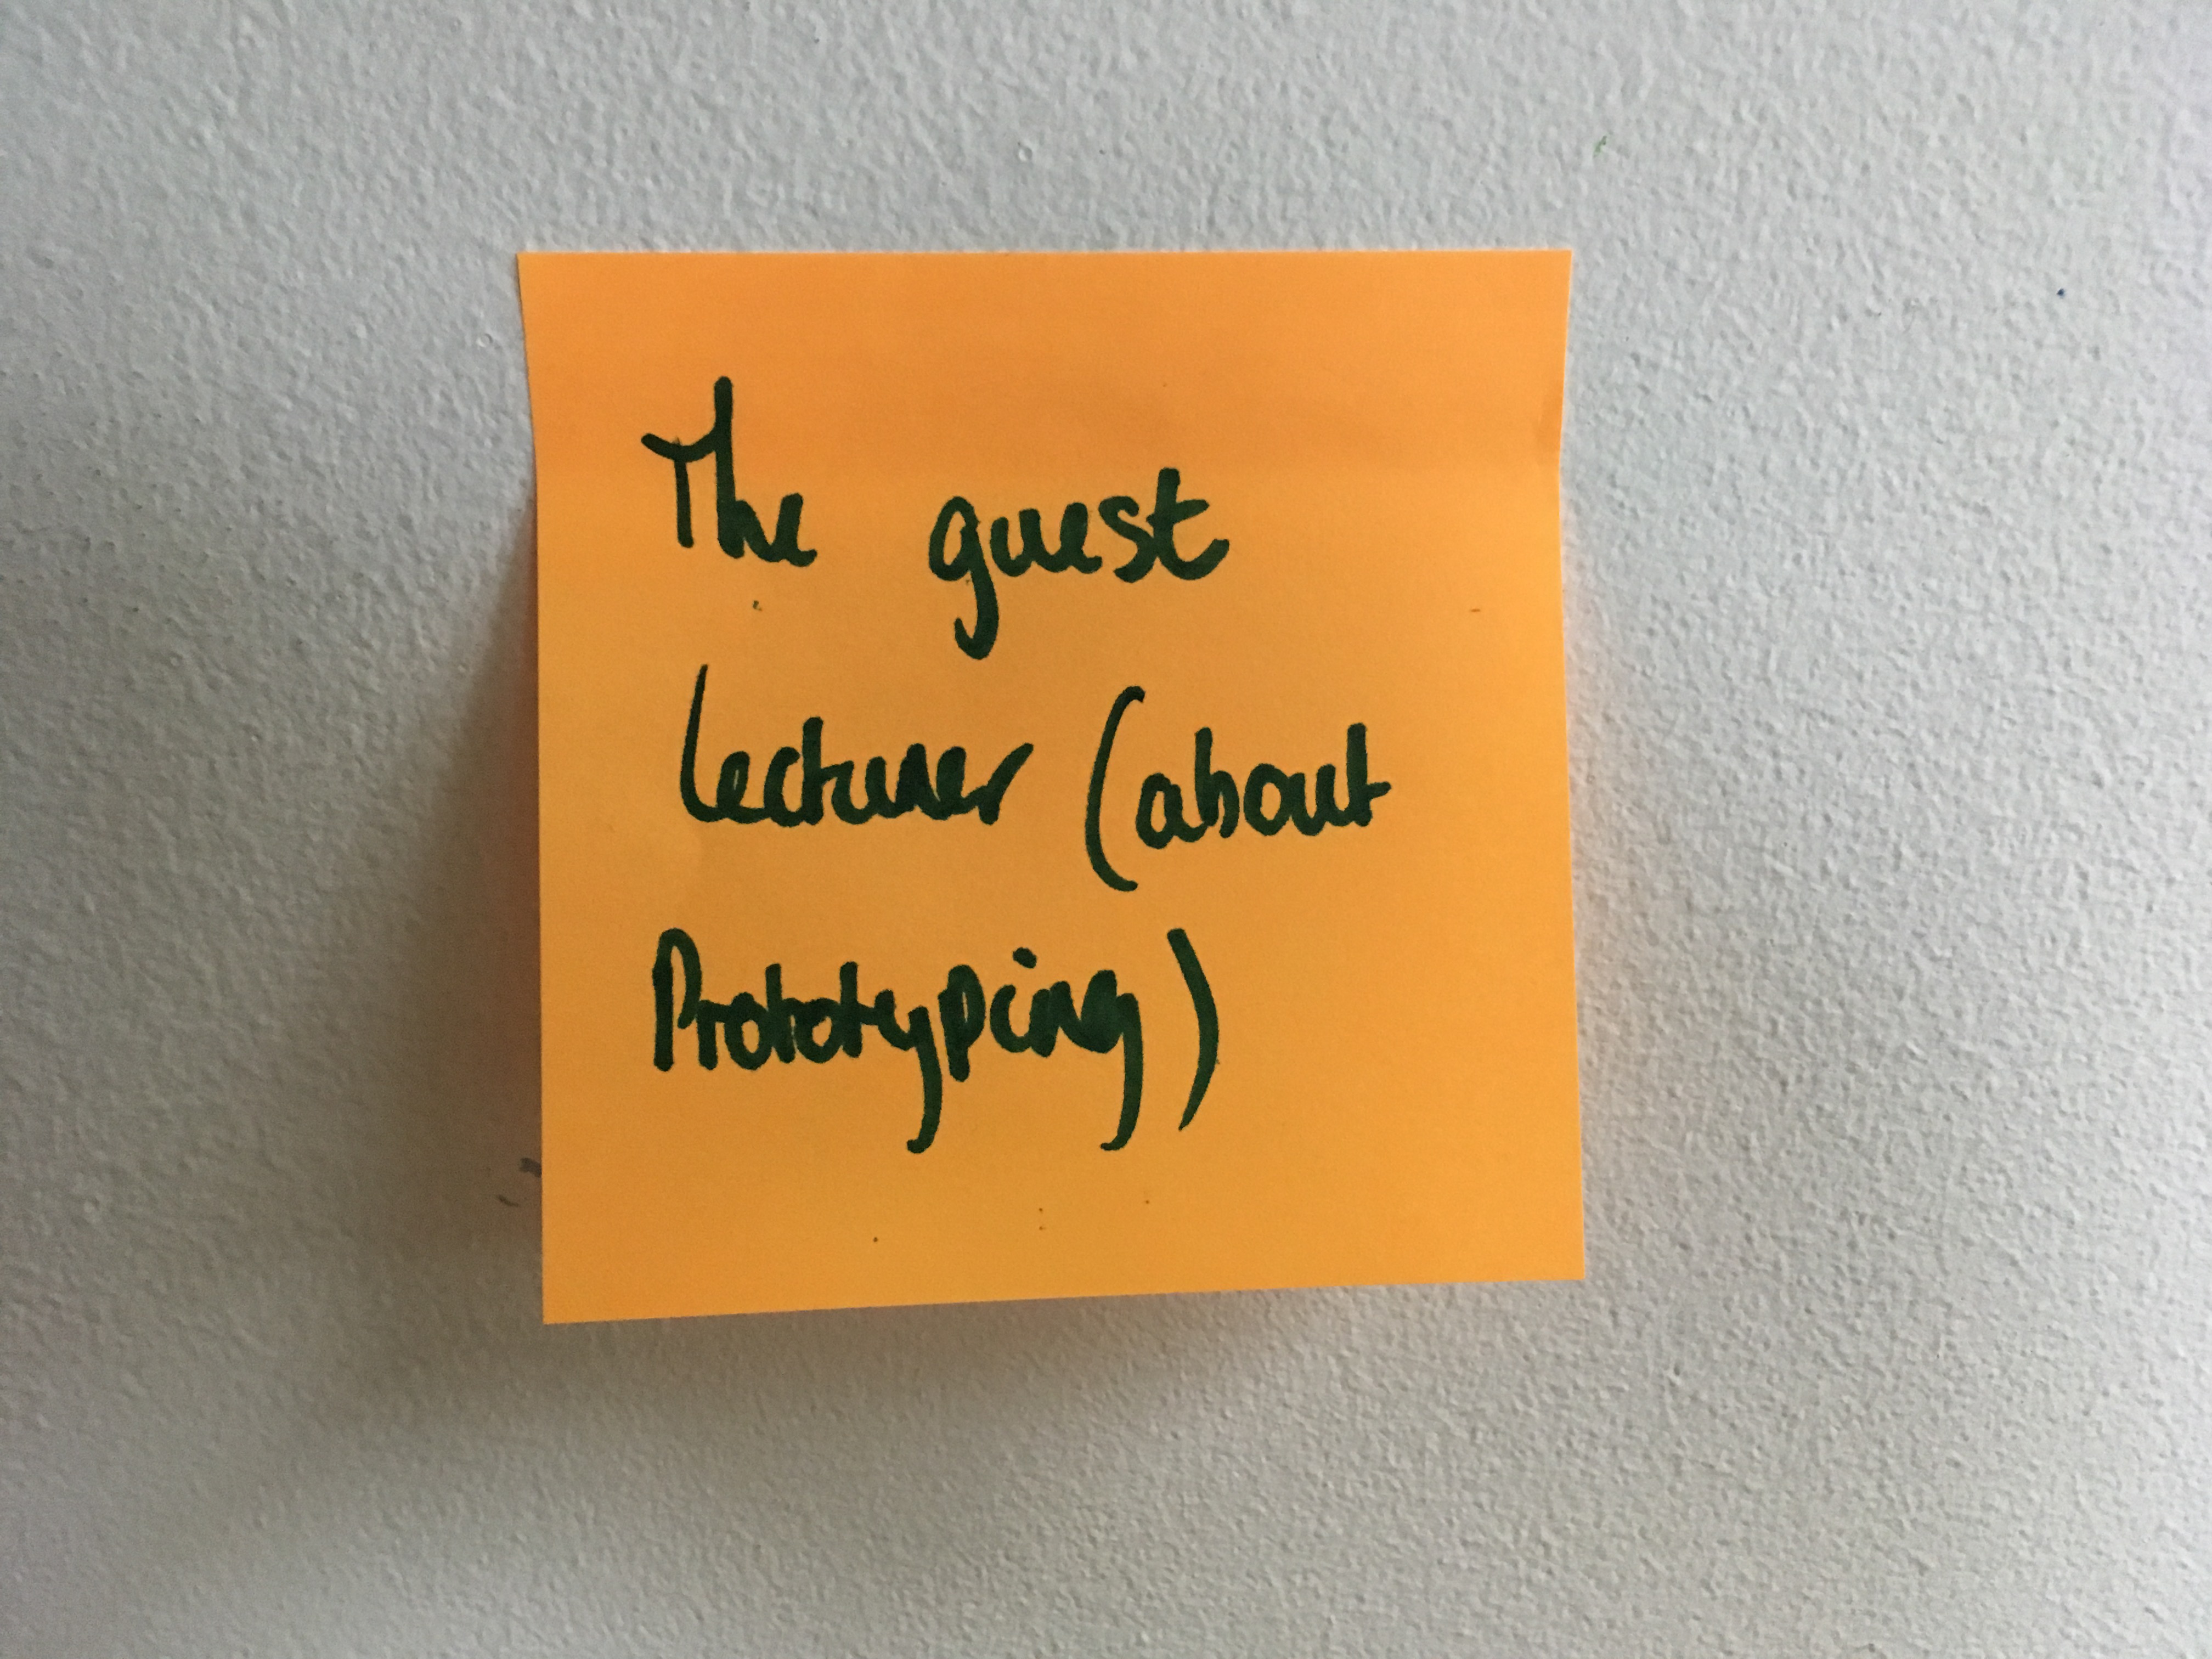 The guest
Lecturer (about
Prototyping)